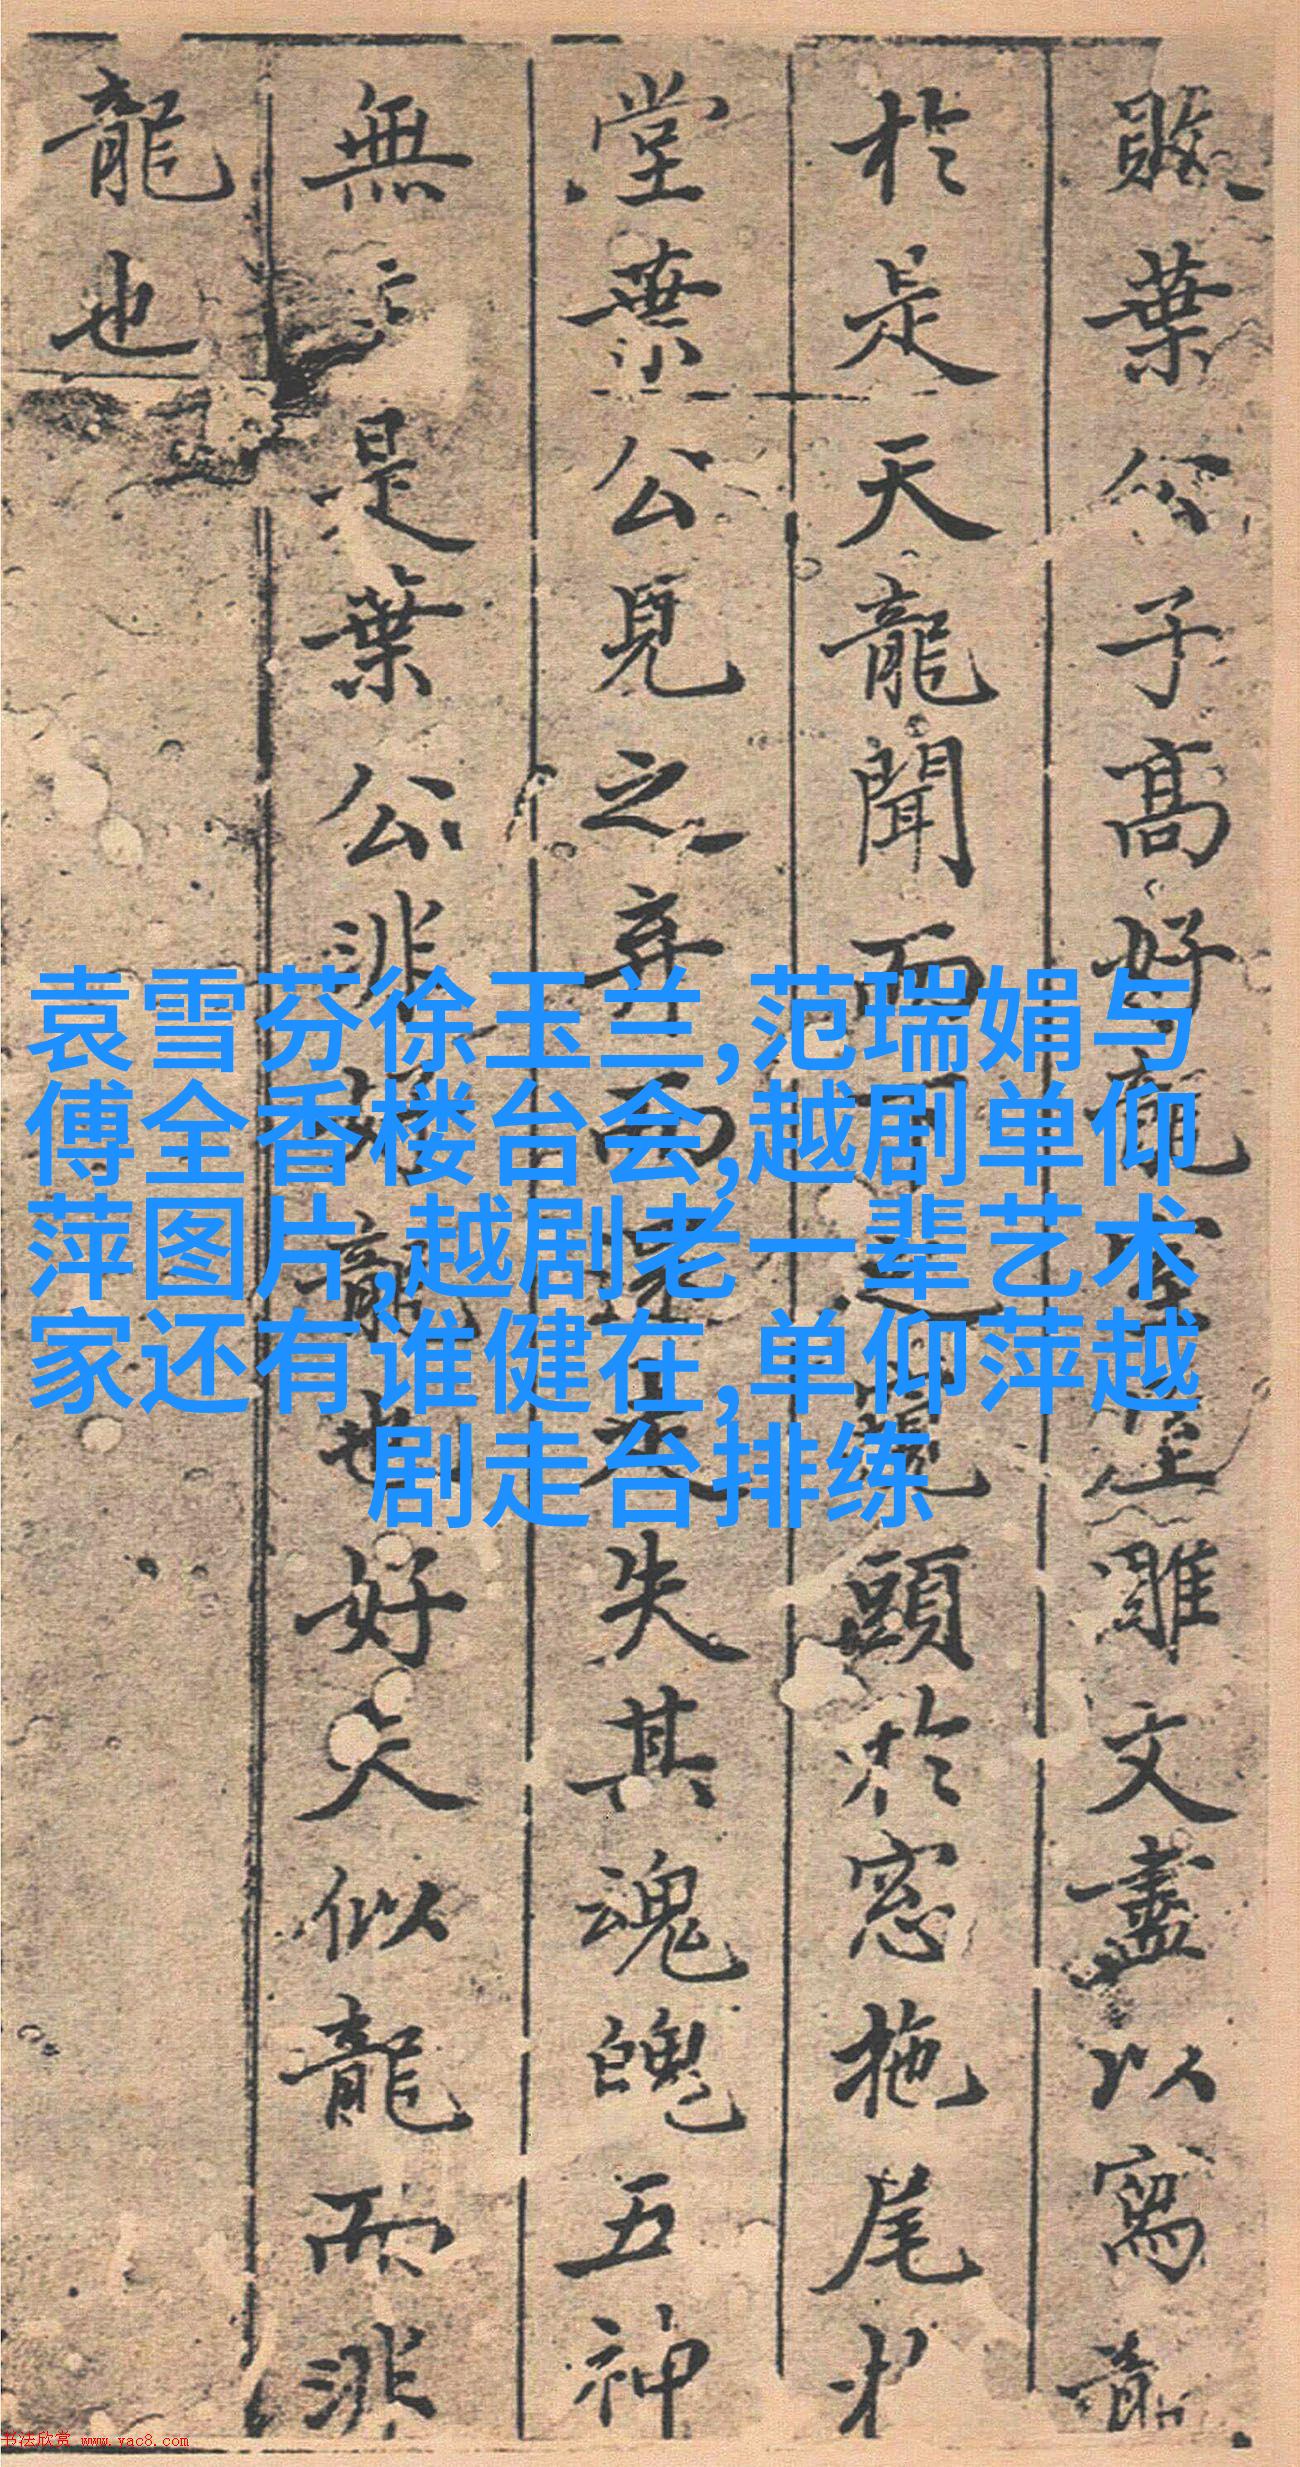 葉公子高好龍室屋雕文盡以寫龍
於是天龍聞而下之窺頭於窓拖尾於
堂葉公見之弃而還走失其魂魄五神
無主是葉公非好龍也好夫似龍而非
龍也
袁雪芬徐玉兰,范瑞娟与
傅全香楼台会,越剧单仰
萍图片,越剧老一辈艺术
家还有谁健在,单仰萍越
剧走台排练
书法欣赏 www.yac8.com